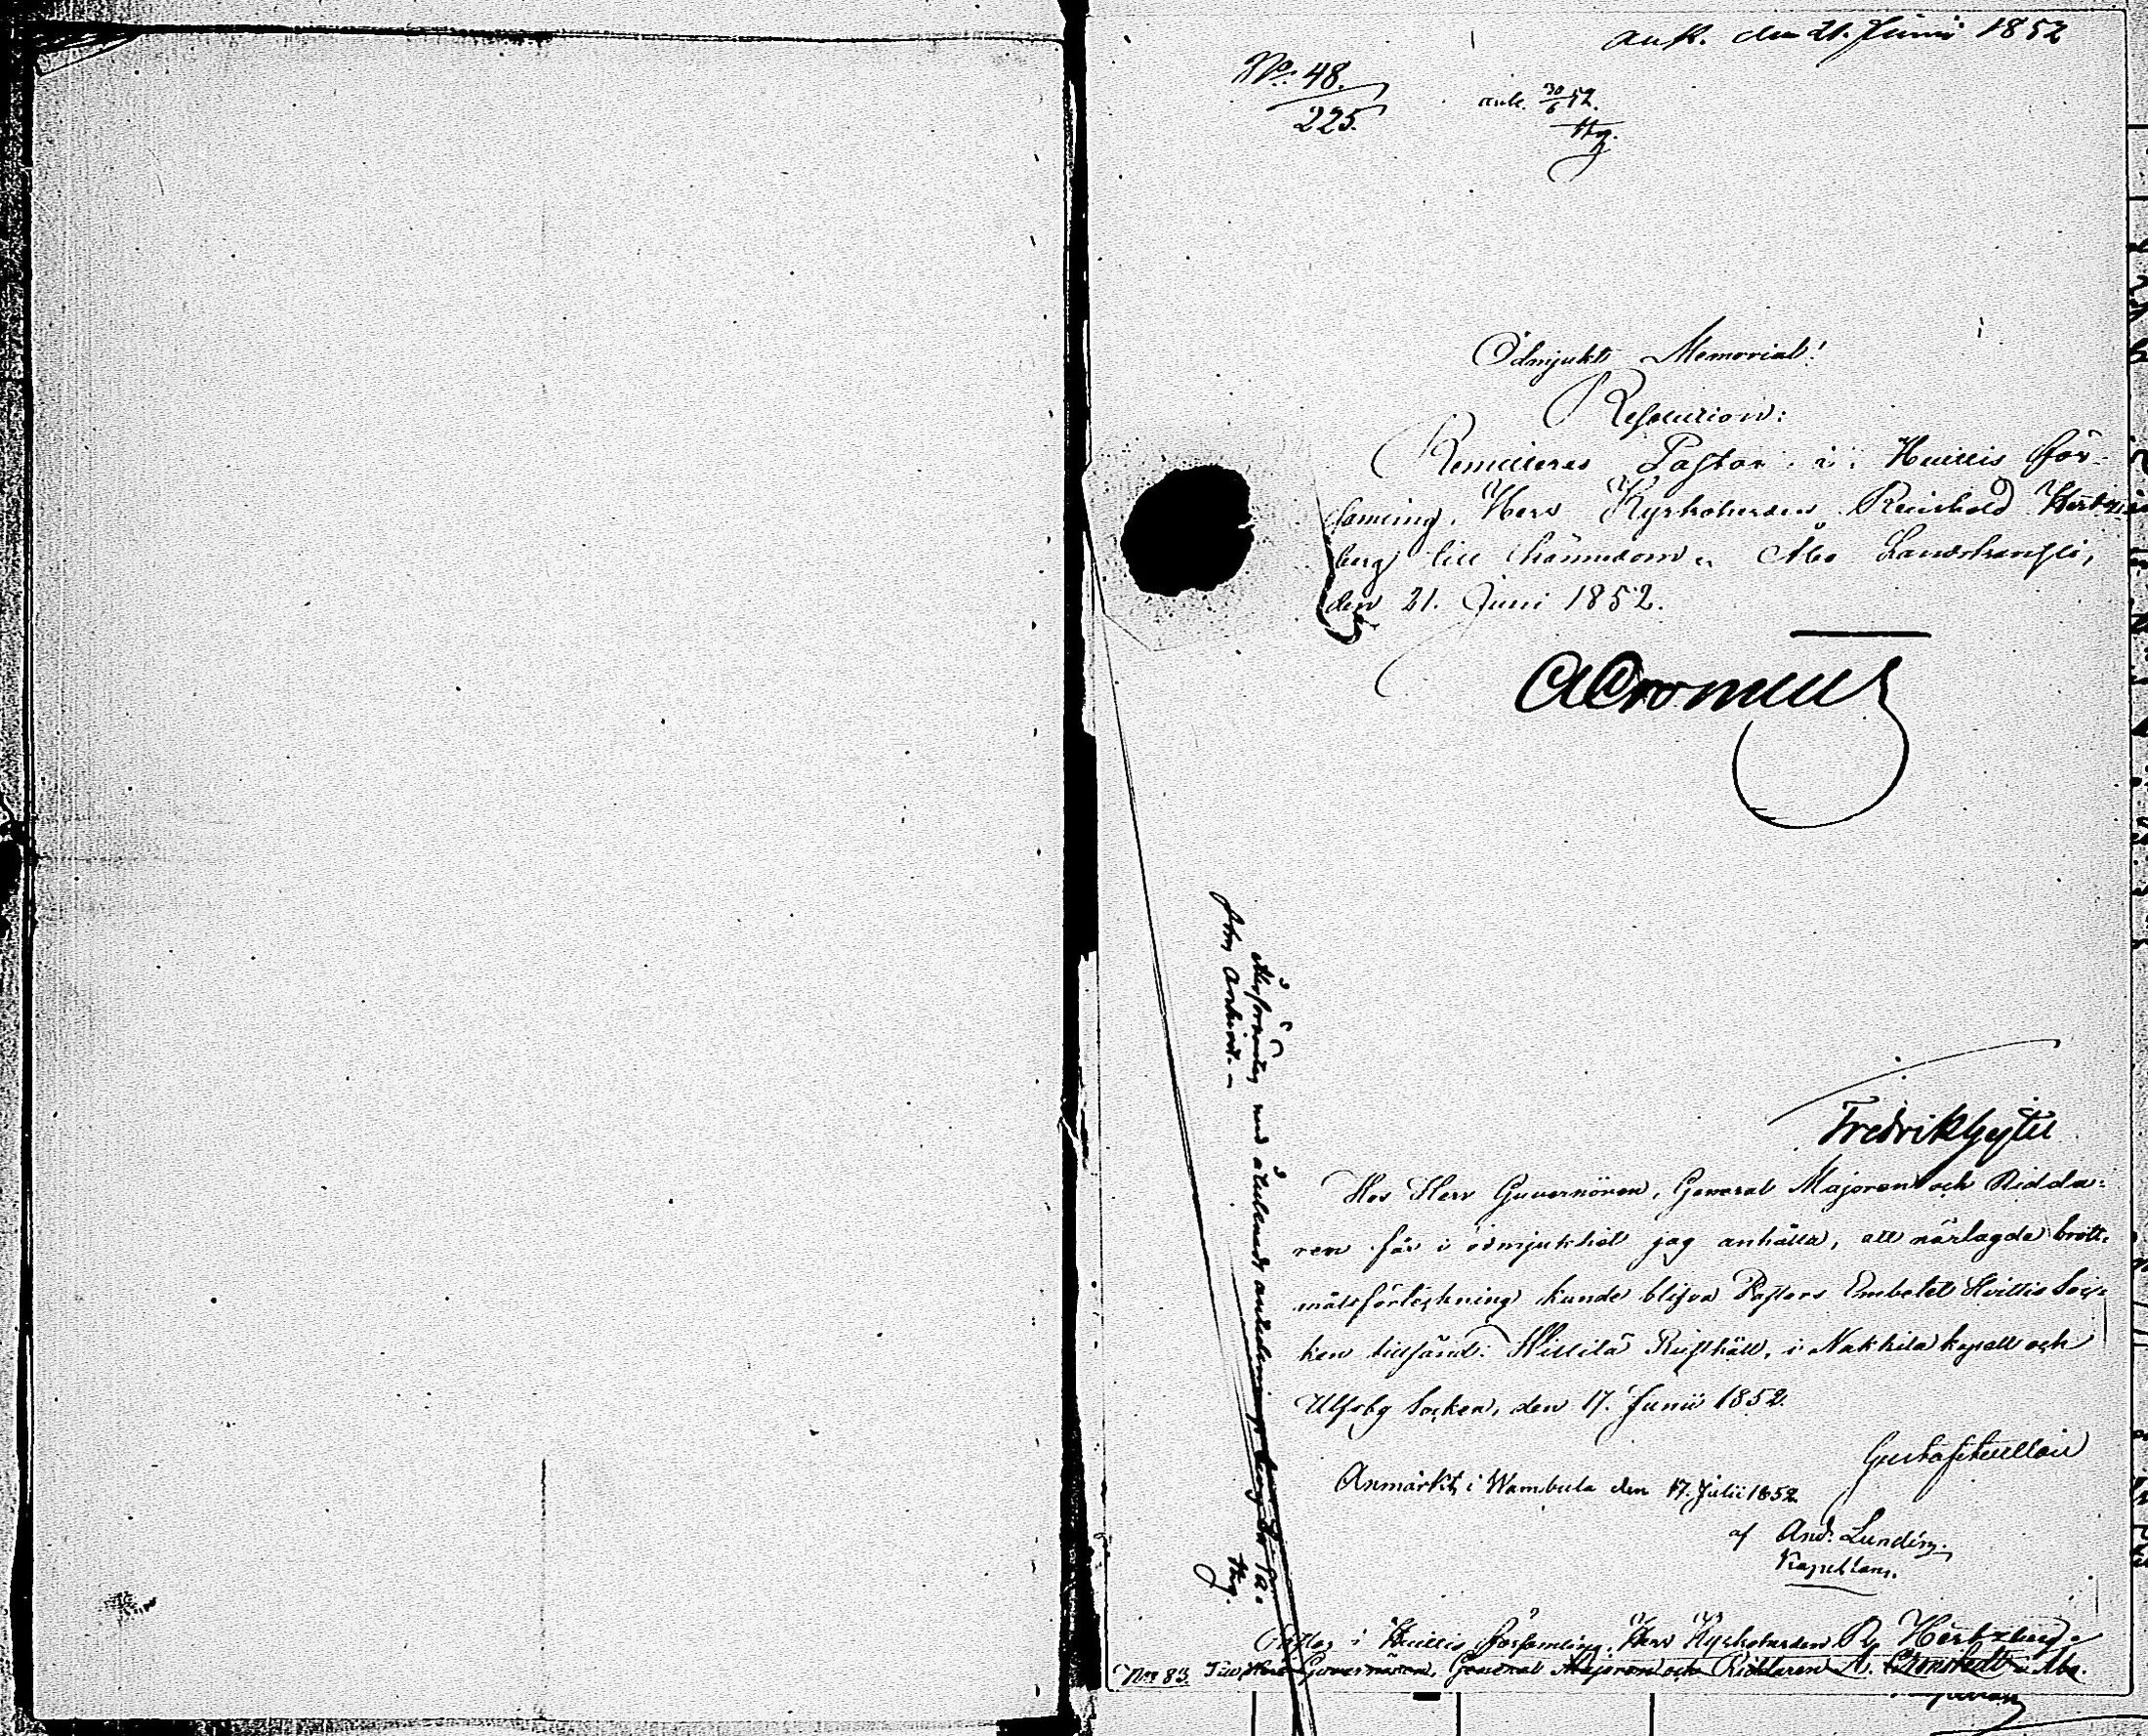 ank. den 21. Junii 1852
No. 48.
225.
ank. 30/6 52.
Hbg.
Ödmjukt Memorial!
Resolution:
Remitteras Pastor i Huittis För-
samling, Herr Kyrkoherden Reinhold Hertz-
berg till kännedom. Åbo Landskansli,
den 21. Juni 1852.
Återsändes med
Hbg.
Hos Herr Guvernören, General Majoren och Ridda-
ren får i ödmjukhet jag anhålla, att närlagde brott-
målsförtekning kunde blifva Pastors Embetet Hvittis Soc-
ken tillsänd. Willilä Rusthåll, i Nakkila kapell och
Ulfsby Socken, den 17. Junii 1852.
Anmärkt i Wambula den 17. Julii 1852
af And. Lundén,
Kapellan.
Pastor i Huittis Församling, Herr Kyrkoherden R. Hertzberg.
No 83. Guvernören, General Majoren och Riddaren A. Cronstedt Åbo.